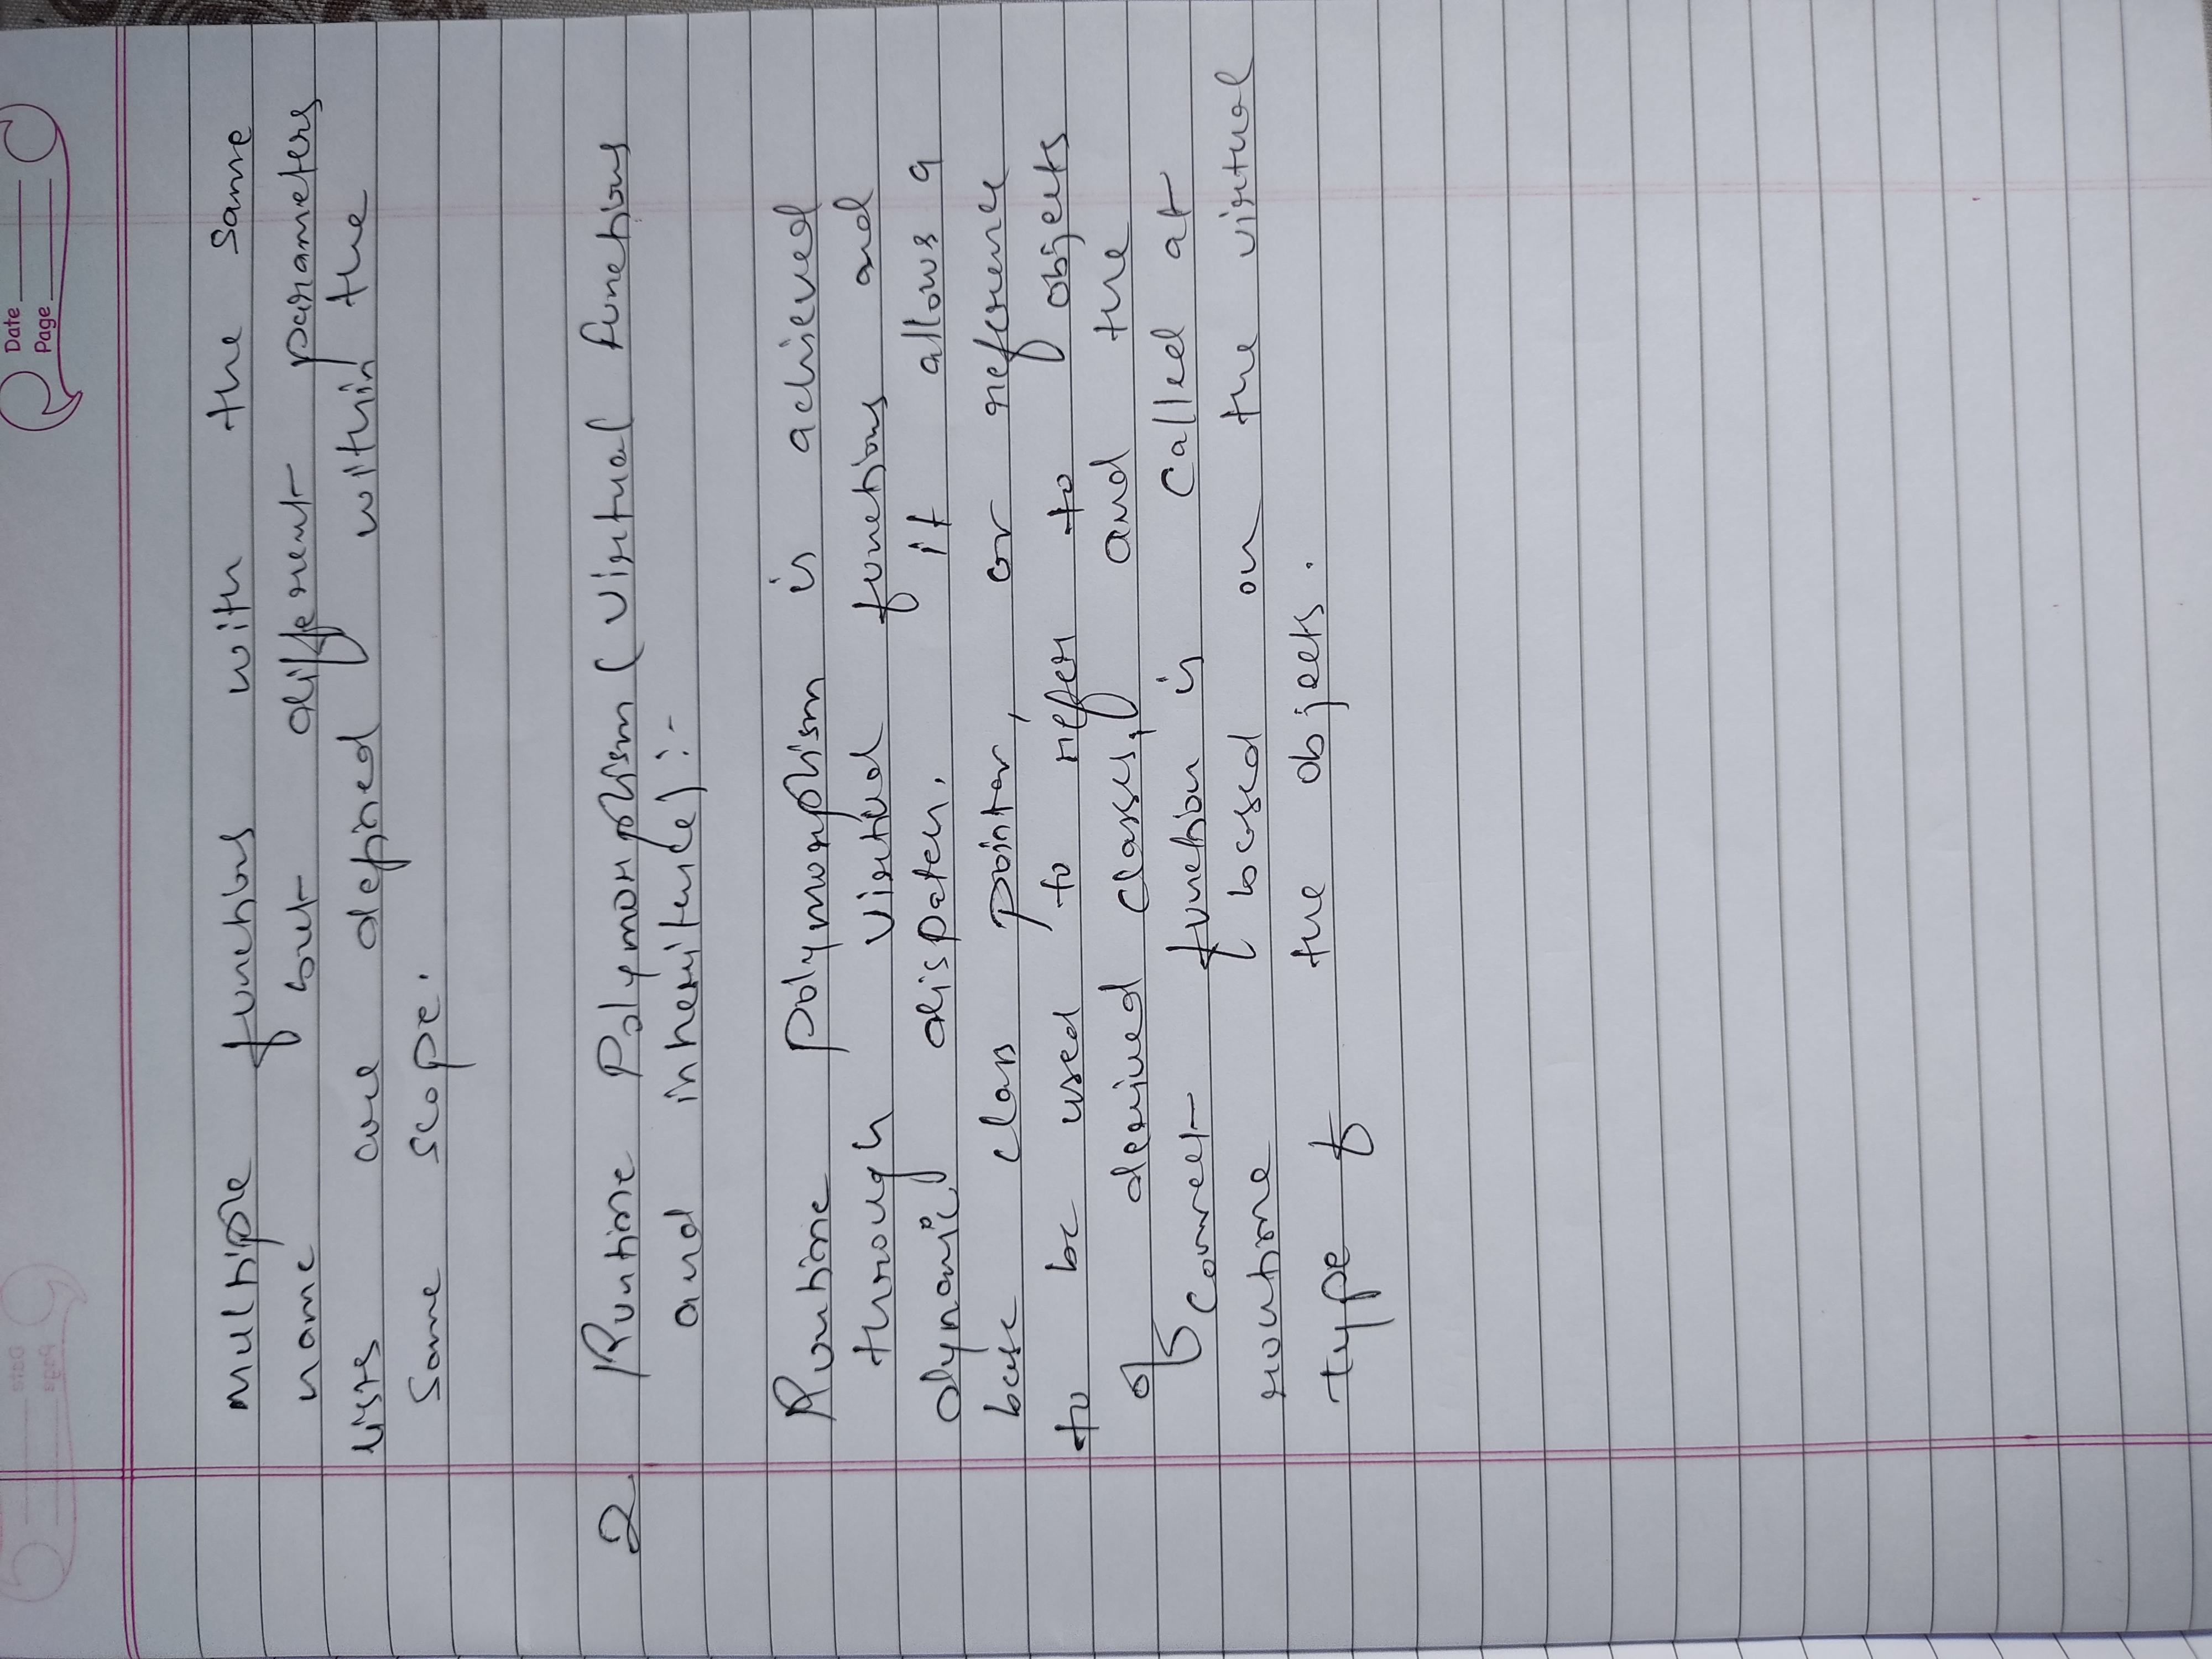 Date
Page
multiple functions with the same
name but different parameters
lists are defined within the
same scope.
2. Runtime Polymorphism (Virtual functions
and inheritence) :-
Runtime polymorphism is achieved
through virtual functions and
dynamic dispatch. it allows a
base class pointer, or reference
to be used to refer to objects
of derived classes, and the
correct function is called at
runtime based on the virtual
type of the objects.